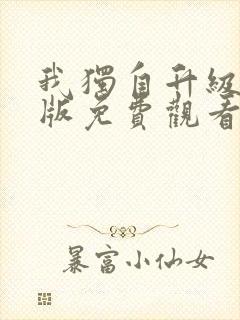 我獨自升級
版免費觀看
暴富小仙女